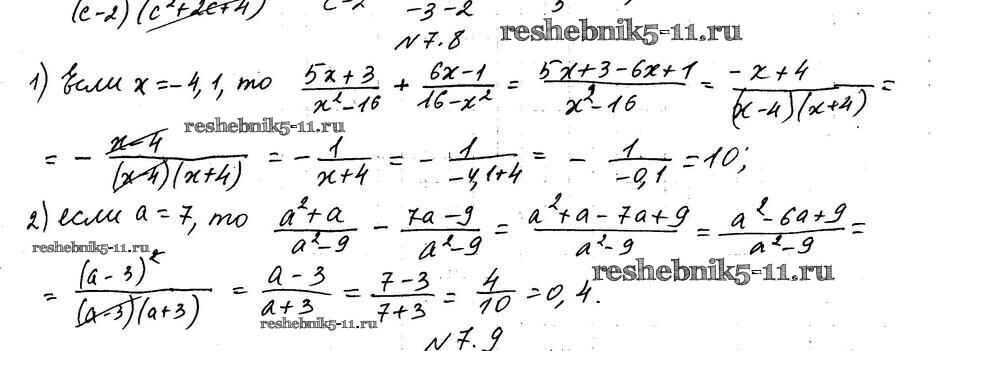 (c-2)(c²+2c+4) c-2 -3-2
N 7.8 reshebnik5-11.ru
1) Если x = -4,1, то (5x+3)/(x²-16) + (6x-1)/(16-x²) = (5x+3-6x+1)/(x²-16) = (-x+4)/((x-4)(x+4)) =
reshebnik5-11.ru
= - (x-4)/((x-4)(x+4)) = - 1/(x+4) = - 1/(-4,1+4) = - 1/(-0,1) = 10;
2) если a = 7, то (a²+a)/(a²-9) - (7a-9)/(a²-9) = (a²+a-7a+9)/(a²-9) = (a²-6a+9)/(a²-9) =
reshebnik5-11.ru
= (a-3)²/((a-3)(a+3)) = (a-3)/(a+3) = (7-3)/(7+3) = 4/10 = 0,4.
reshebnik5-11.ru
reshebnik5-11.ru
N 7.9